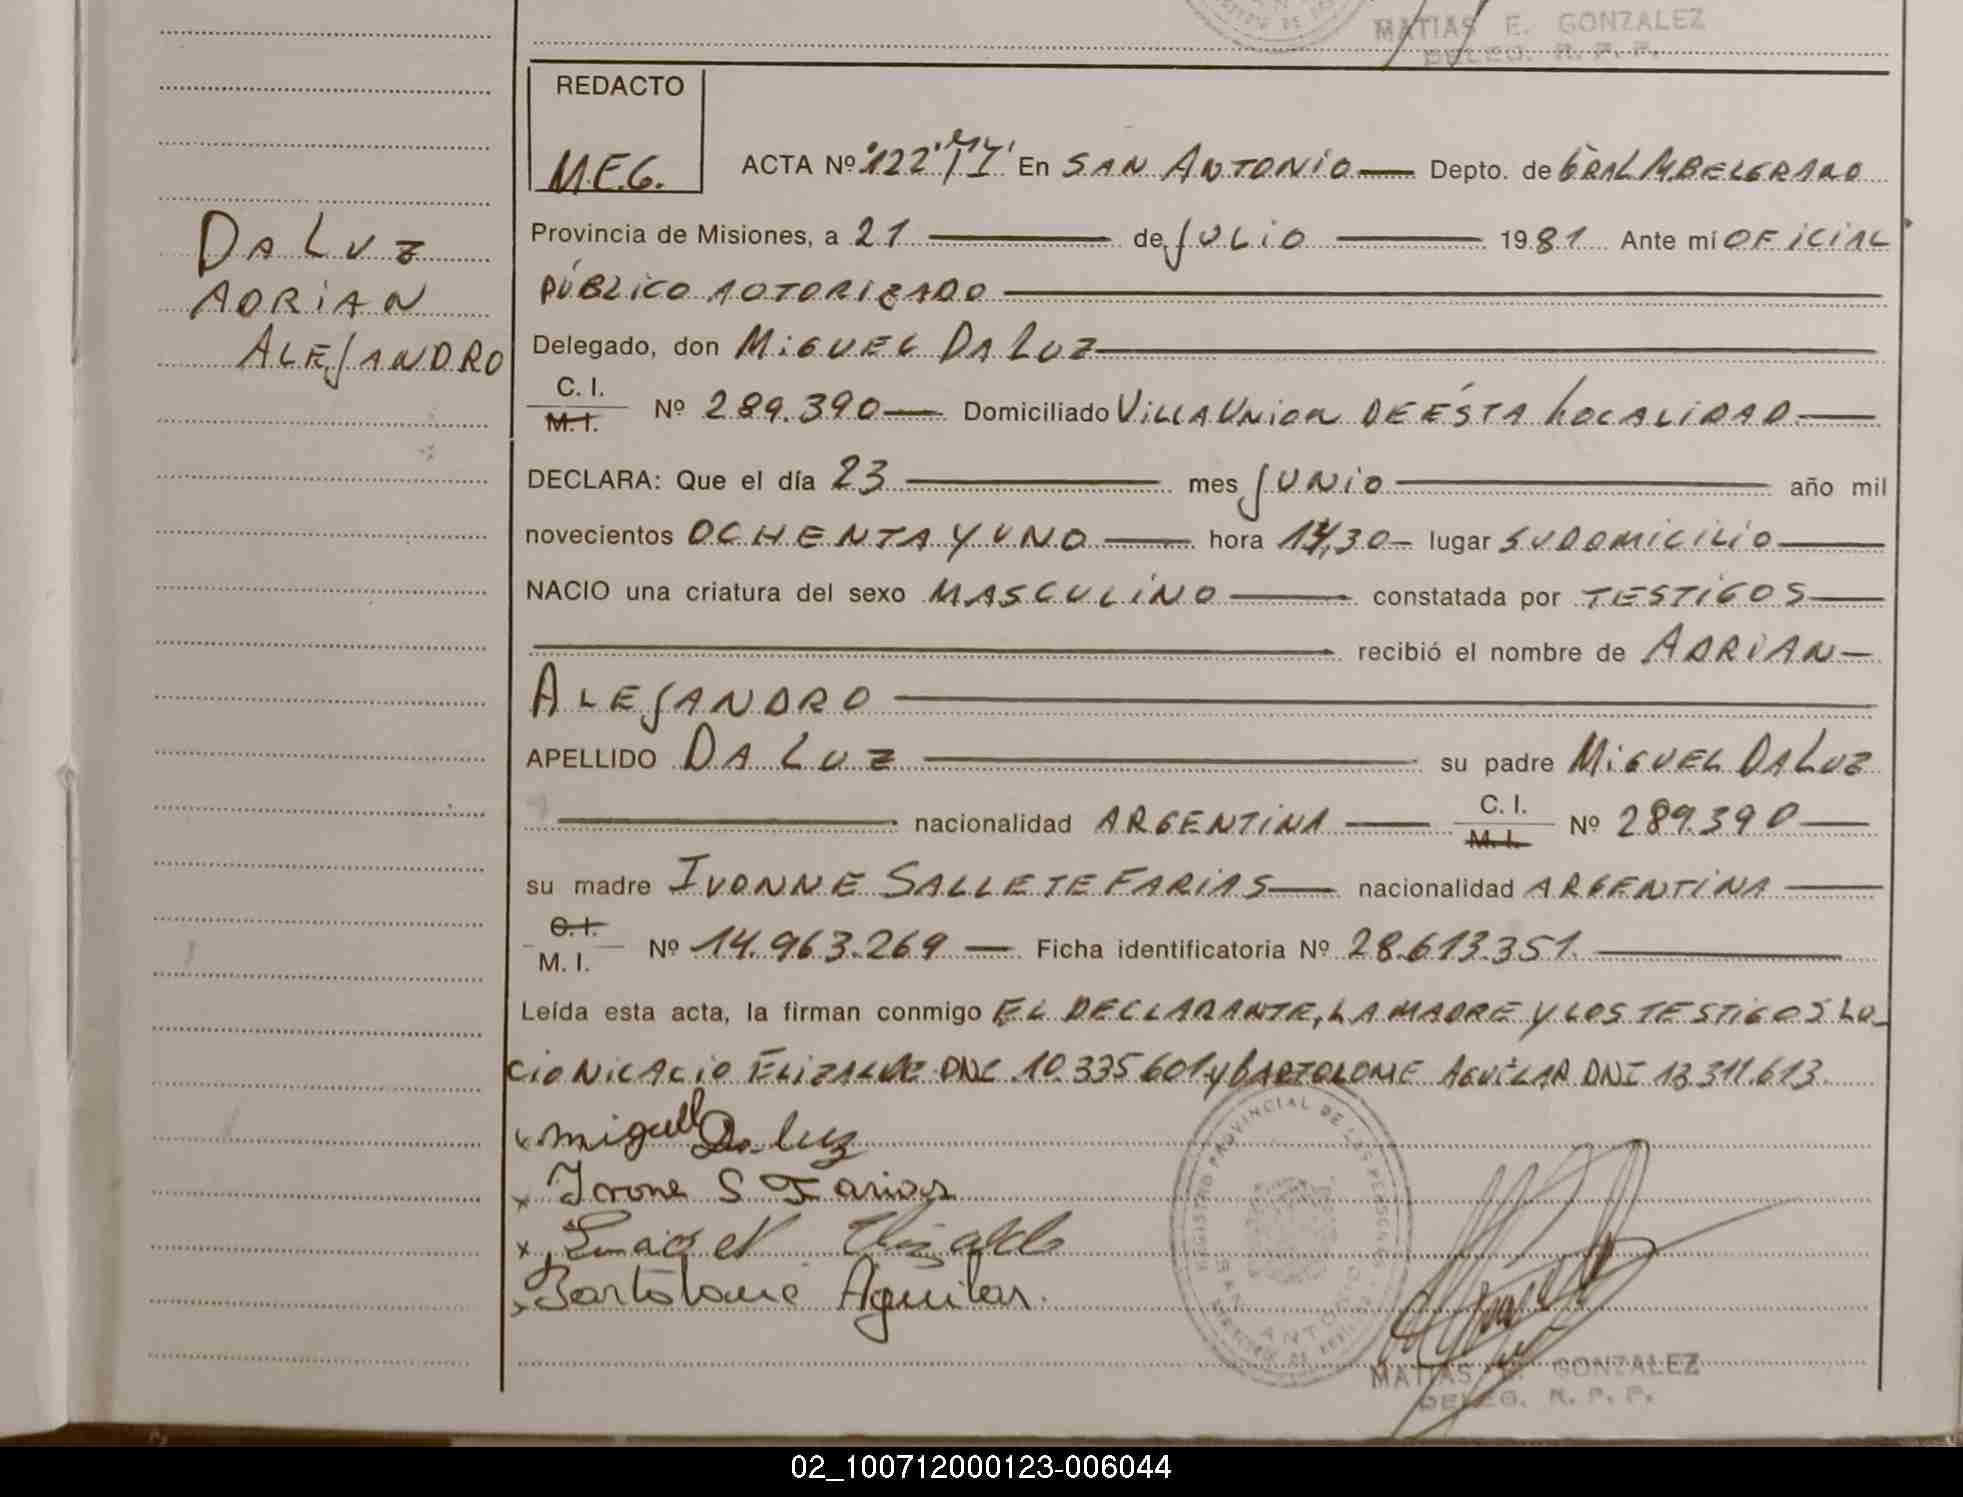 MATIAS E. GONZALEZ
DELEG. R. P. P.
REDACTO
M.E.G.
ACTA Nº 122 En SAN ANTONIO Depto. de GRAL M.BELGRANO
Provincia de Misiones, a 21 de JULIO 1981 Ante mí OFICIAL
PÚBLICO AUTORIZADO
DA LUZ
ADRIAN
ALEJANDRO
Delegado, don MIGUEL DA LUZ
C. I.
M. I. Nº 289.390 Domiciliado VILLA UNION DE ÉSTA LOCALIDAD
DECLARA: Que el día 23 mes JUNIO año mil
novecientos OCHENTA Y UNO hora 14,30 lugar SU DOMICILIO
NACIO una criatura del sexo MASCULINO constatada por TESTIGOS
recibió el nombre de ADRIAN
ALEJANDRO
APELLIDO DA LUZ su padre MIGUEL DA LUZ
nacionalidad ARGENTINA C. I. M. I. Nº 289.390
su madre IVONNE SALLETE FARIAS nacionalidad ARGENTINA
C. I.
M. I. Nº 14.963.269 Ficha identificatoria Nº 28.613.351.
Leída esta acta, la firman conmigo EL DECLARANTE, LA MADRE Y LOS TESTIGOS LU-
CIO NICACIO ELIZALDE DNI 10.335.601 y BARTOLOME AGUILAR DNI 13.311.613.
x Miguel Da luz
x Ivone S Farias
x Elizalde
x Bartolome Aguilar.
REGISTRO PROVINCIAL DE LAS PERSONAS
SAN ANTONIO
MATIAS E. GONZALEZ
DELEG. R. P. P.
02_100712000123-006044